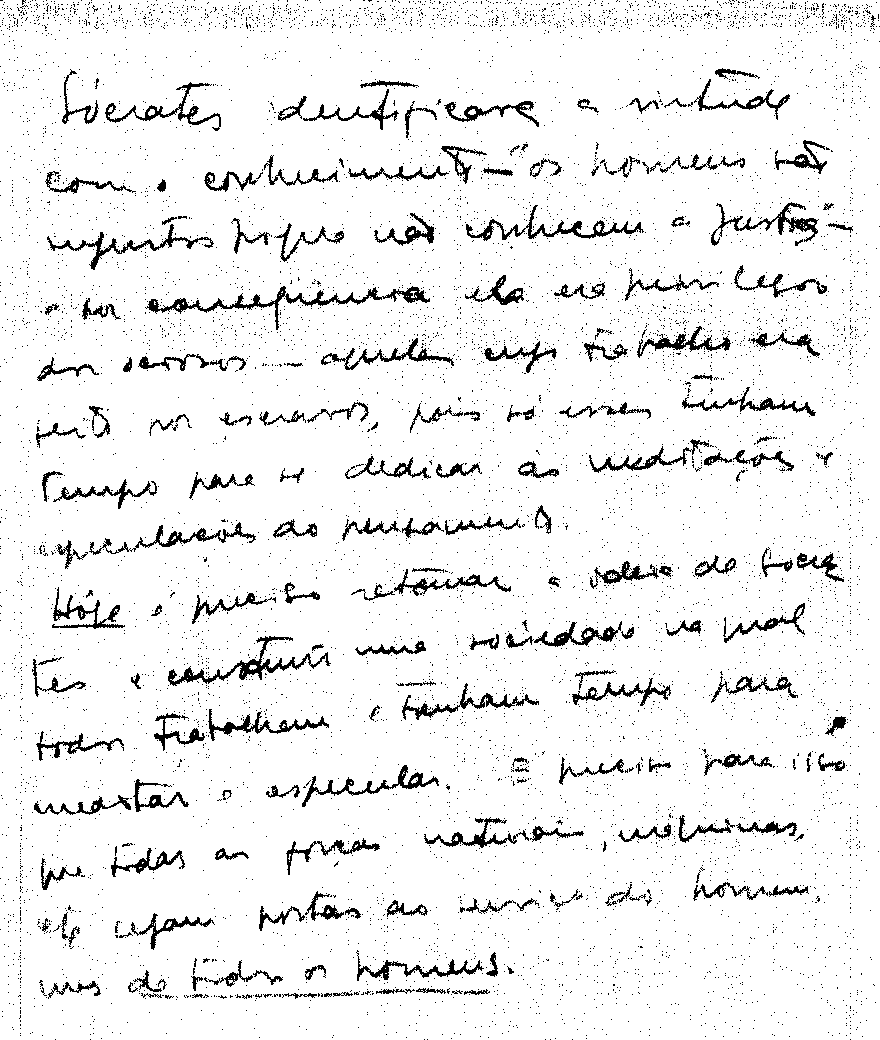 Sócrates identificava a virtude
com o conhecimento — "os homens são
injustos porque não conhecem a justiça" —
e por consequencia ela era privilegio
dos ociosos — aqueles cujo trabalho era
feito por escravos, pois só esses tinham
tempo para se dedicar às meditações e
especulações do pensamento.
Hoje é preciso retomar a ideia de Sócra
tes e construir uma sociedade na qual
todos trabalhem e tenham tempo para
meditar e especular. É preciso para isso
que todas as forças naturais, máquinas,
etc sejam postas ao serviço do homem.
mas de todos os homens.